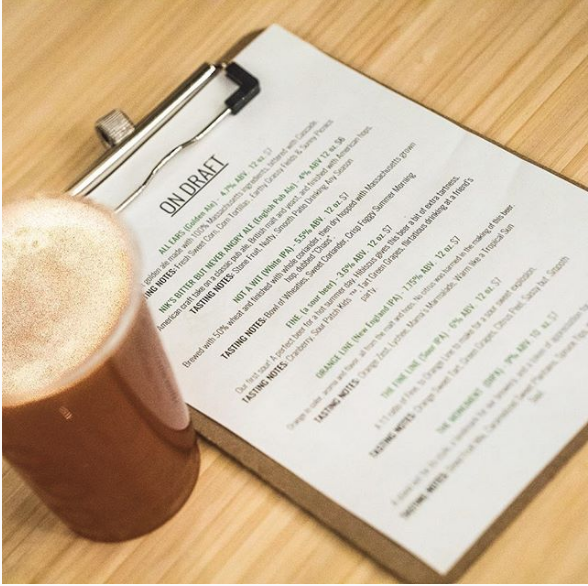 ON DRAFT
ALL EARS (Golden Ale) - 4.7% ABV 12 oz. $7
golden ale made with 100% Massachusetts ingredients, bittered with Cascade.
NOTES: Fresh Sweet Corn, Corn Tortillas, Earthy Grassy Fields & Sunny Picnics
NIK'S BITTER BUT NEVER ANGRY ALE (English Pub Ale) - 4% ABV 12 oz. $6
American craft take on a classic pub ale. British malt and yeast, and finished with American hops.
TASTING NOTES: Stone Fruit, Nutty, Smooth Patio Drinking Any Season
NOT A WIT (White IPA) - 5.5% ABV - 12 oz. $7
Brewed with 50% wheat and finished with whole coriander, then dry hopped with Massachusetts grown
hop, dubbed "Chaos"
TASTING NOTES: Bowl of Wheaties, Sweet Coriander, Crisp Foggy Summer Morning
FINE, (a sour beer), 3.6% ABV, 12 oz. $7
Our first sour! A perfect beer for a hot summer day. Hibiscus gives this beer a bit of extra tartness.
TASTING NOTES: Cranberry, Sour Patch Kids ™, Tart Green Grapes, flirtatious drinking at a friend's
party
ORANGE LINE (New England IPA), 7.75% ABV, 12 oz. $7
Orange in color, aroma and flavor, all from the malt and hops. No citrus was harmed in the making of this beer.
TASTING NOTES: Orange Zest, Marmalade, Warm like a Tropical Sun
THE FINE LINE (Sour IPA), 6% ABV, 12 oz. $7
A 1:1 ratio of Fine, to Orange Line to make a sour
TASTING NOTES: Orange Sweet Tart, Green Grapes, Citrus Peel, Smooth
THE MONUMENT, (DIPA), 9% ABV, 10 oz. $7
TASTING NOTES: